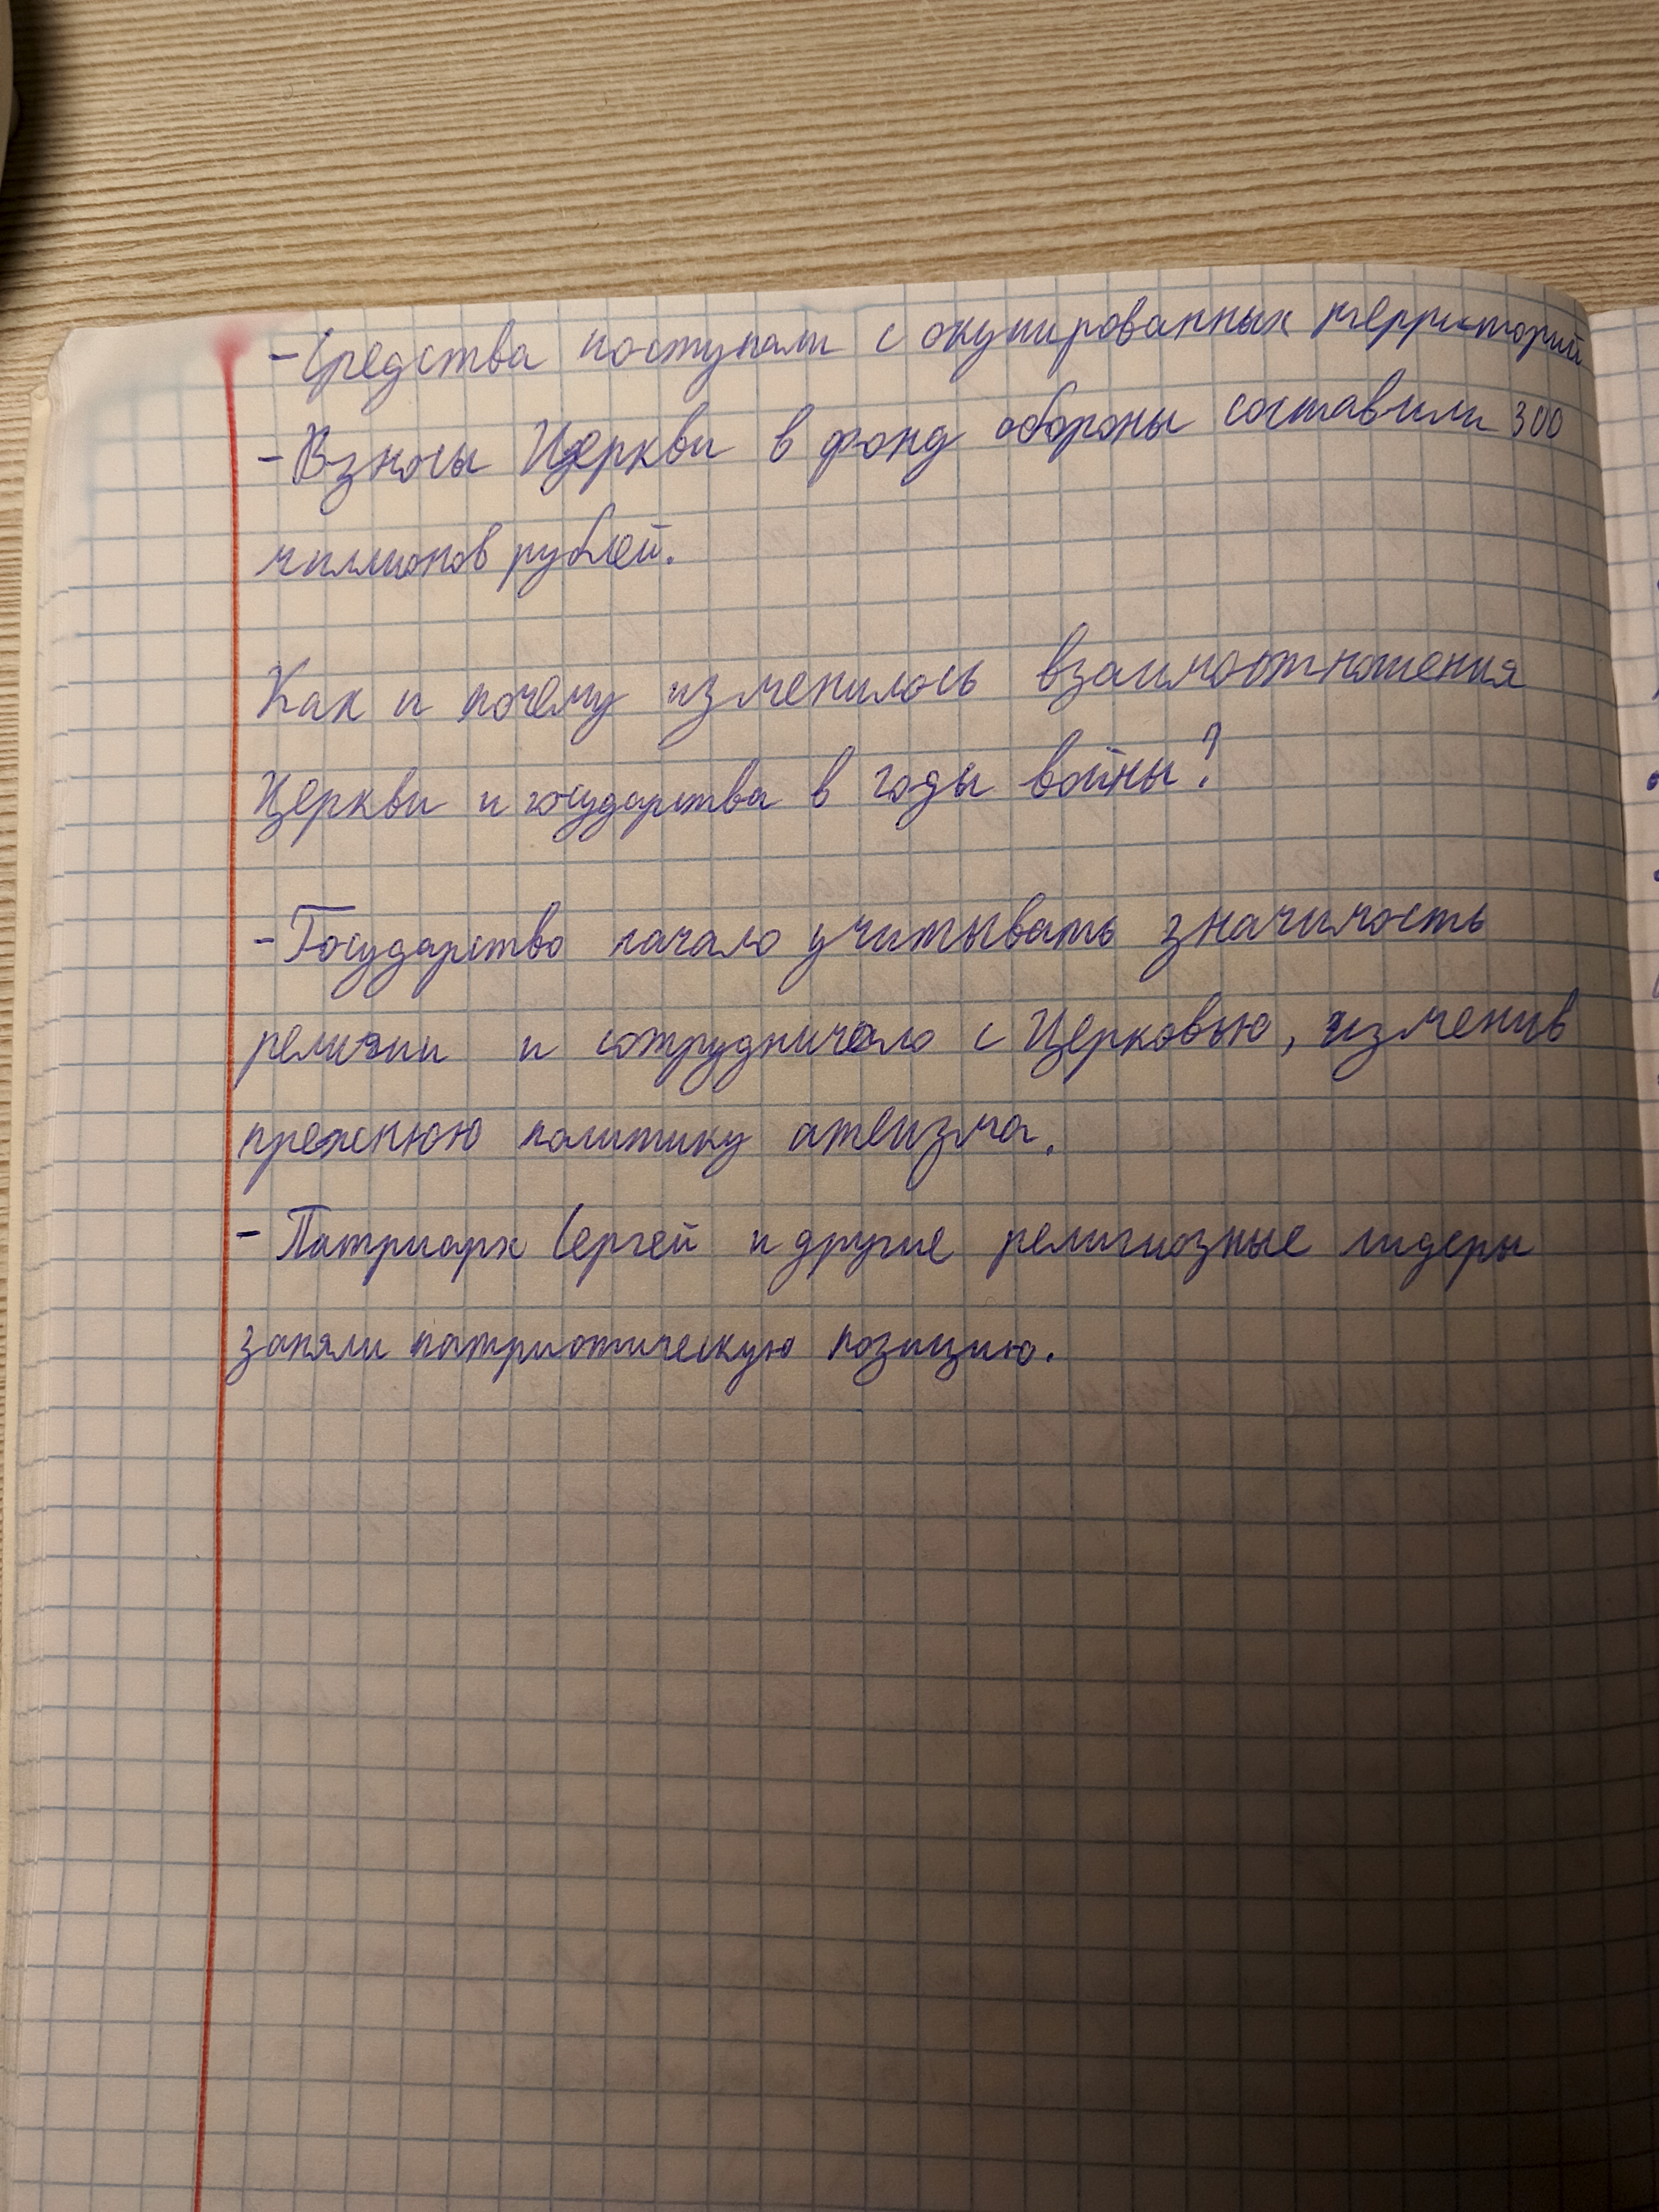 - Средства поступали с окупированных территорий
- Взносы Церкви в фонд обороны составили 300
миллионов рублей.
Как и почему изменилось взаимоотношения
Церкви и государства в годы войны?
- Государство начало учитывать значимость
религии и сотрудничало с Церковью, изменив
прежнюю политику атеизма.
- Патриарх Сергей и другие религиозные лидеры
заняли патриотическую позицию.